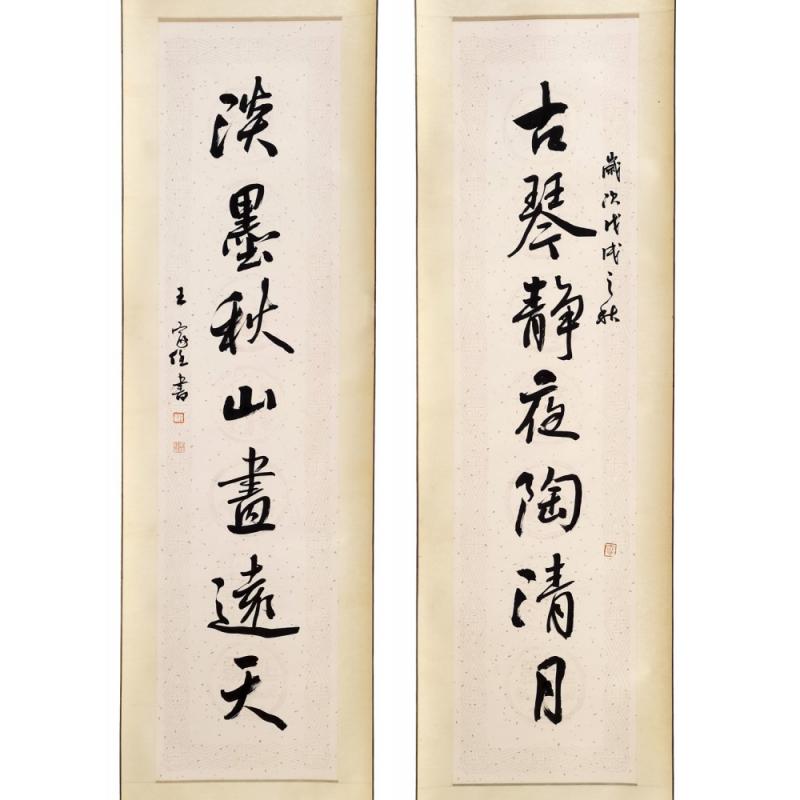 歲次戊戌之秋
古琴靜夜陶清月
淡墨秋山畫遠天
王家任書